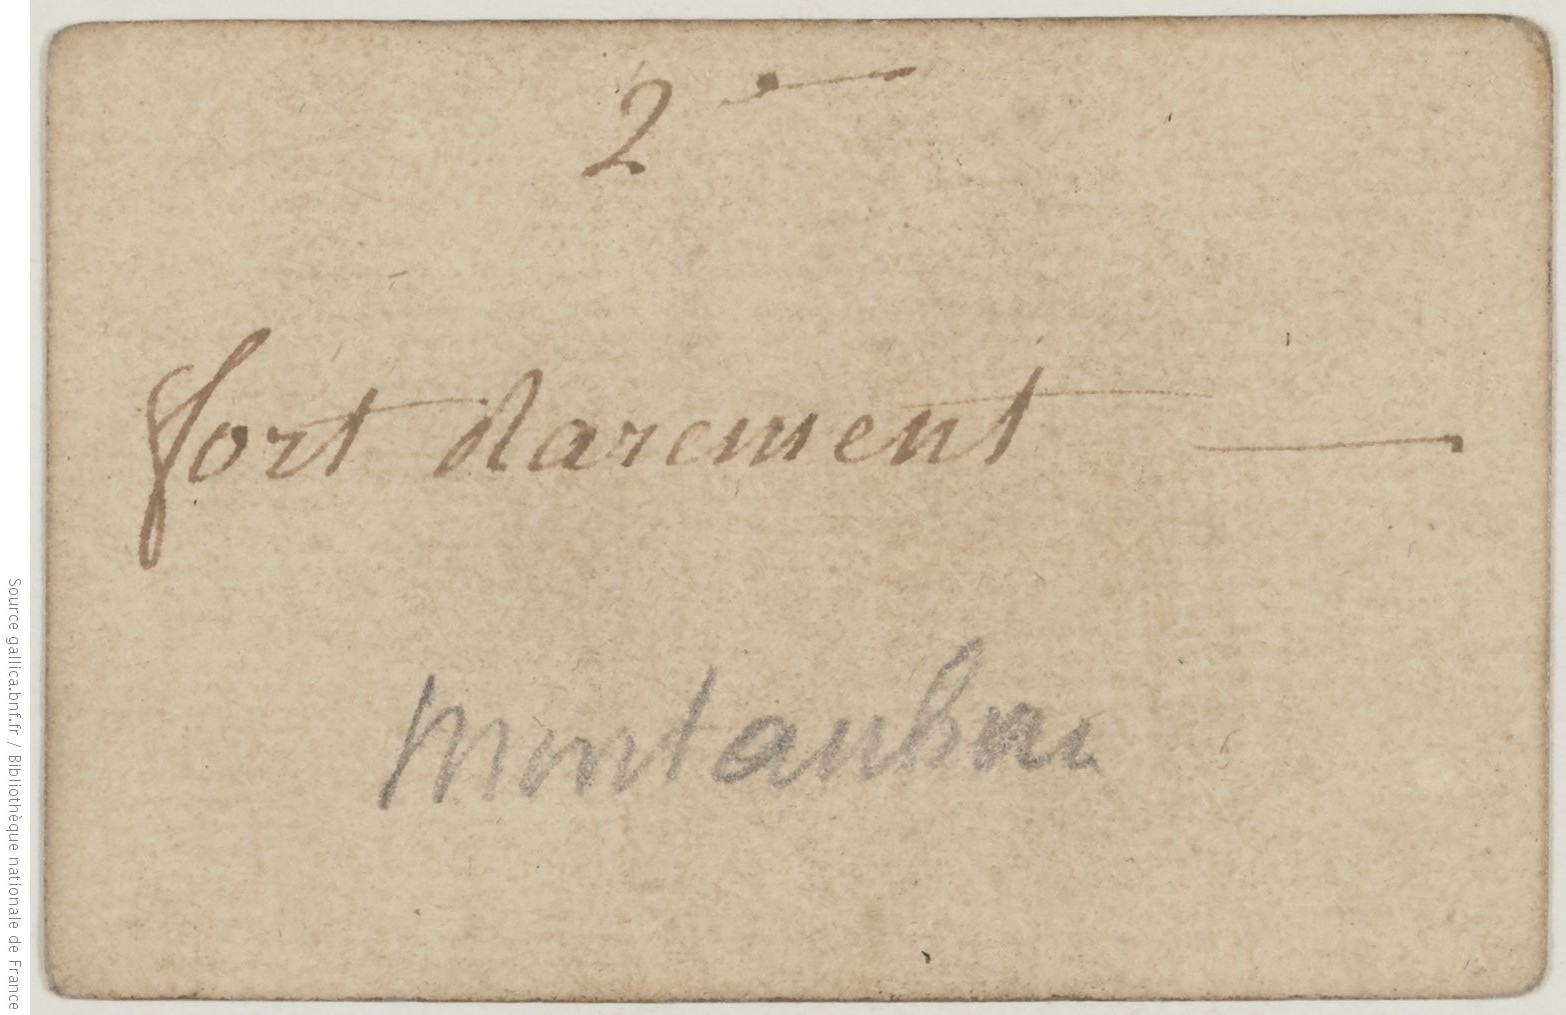 2 —
fort rarement —
Montauban
Source gallica.bnf.fr / Bibliothèque nationale de France